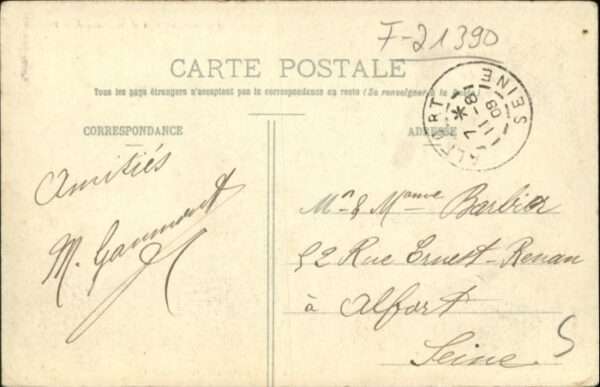 F-21390
CARTE POSTALE
Tous les pays étrangers n'acceptent pas la correspondance au recto (Se renseigner à la Poste)
CORRESPONDANCE
ADRESSE
ALFORT
SEINE
18*
7 -11
09
Amitiés
M. Gaumont
Mr & Mame Barbier
52 Rue Ernest-Renan
à Alfort
Seine
5